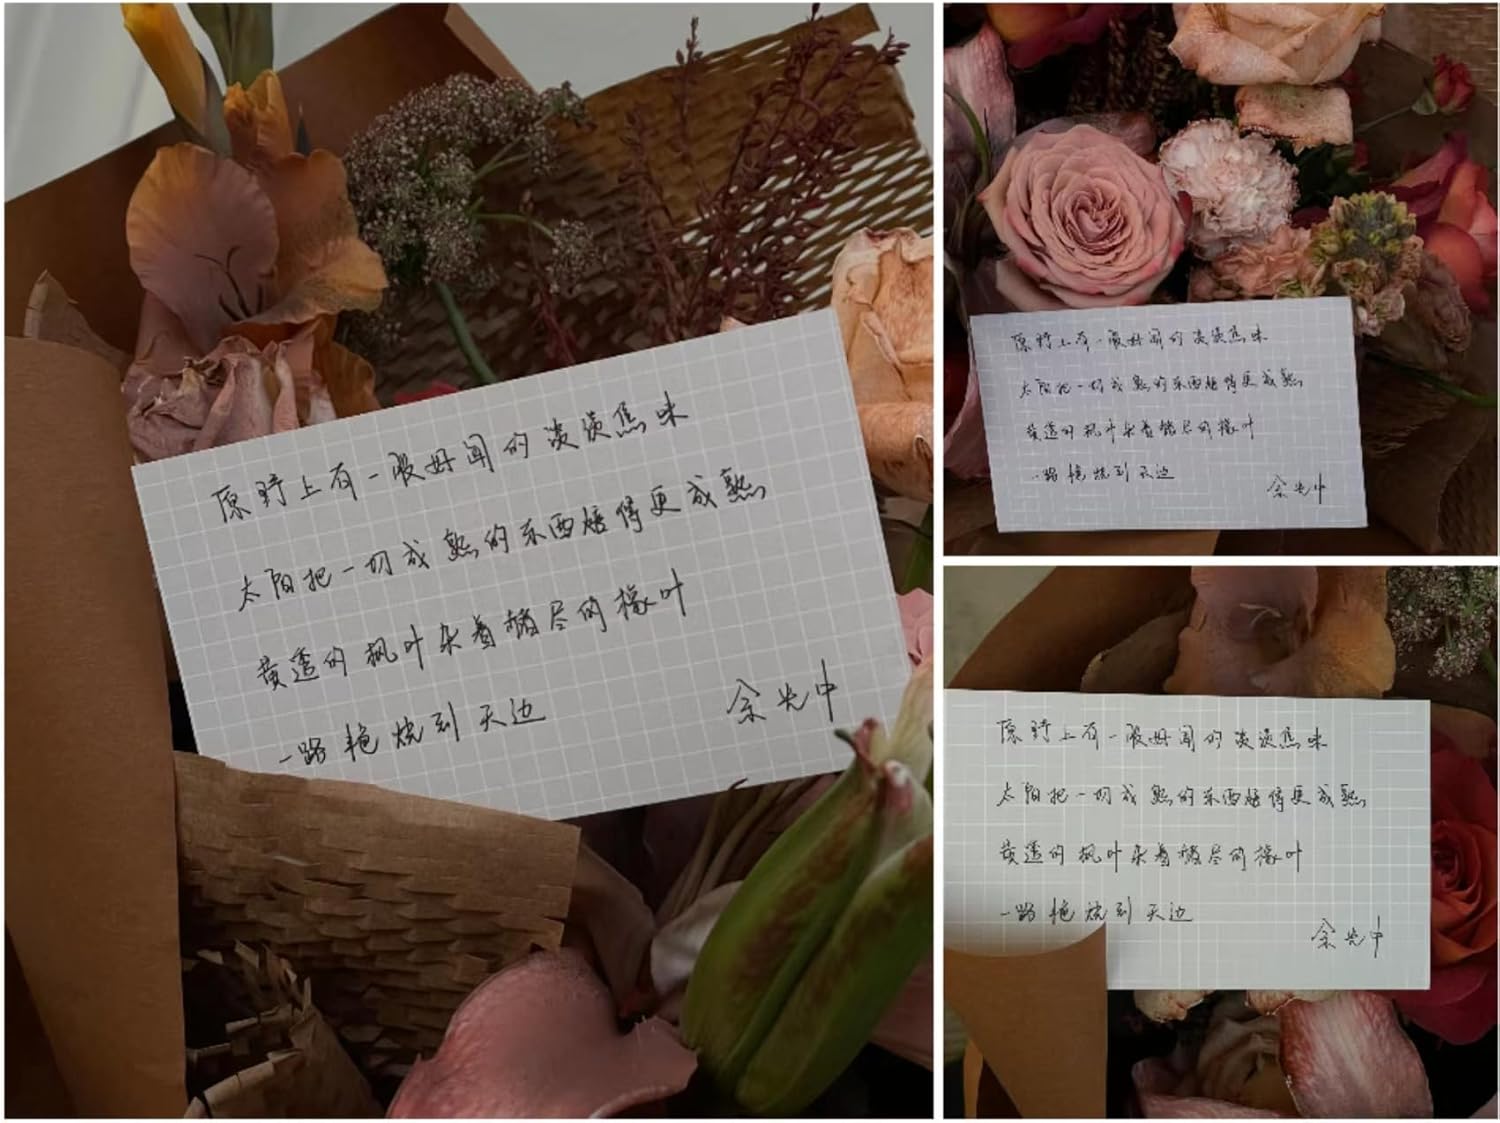 原野上有一股好闻的淡淡焦味
太阳把一切成熟的东西焙得更成熟
黄透的枫叶杂着赭尽的橡叶
一路艳烧到天边
余光中
原野上有一股好闻的淡淡焦味
太阳把一切成熟的东西焙得更成熟
黄透的枫叶杂着赭尽的橡叶
一路艳烧到天边
余光中
原野上有一股好闻的淡淡焦味
太阳把一切成熟的东西焙得更成熟
黄透的枫叶杂着赭尽的橡叶
一路艳烧到天边
余光中